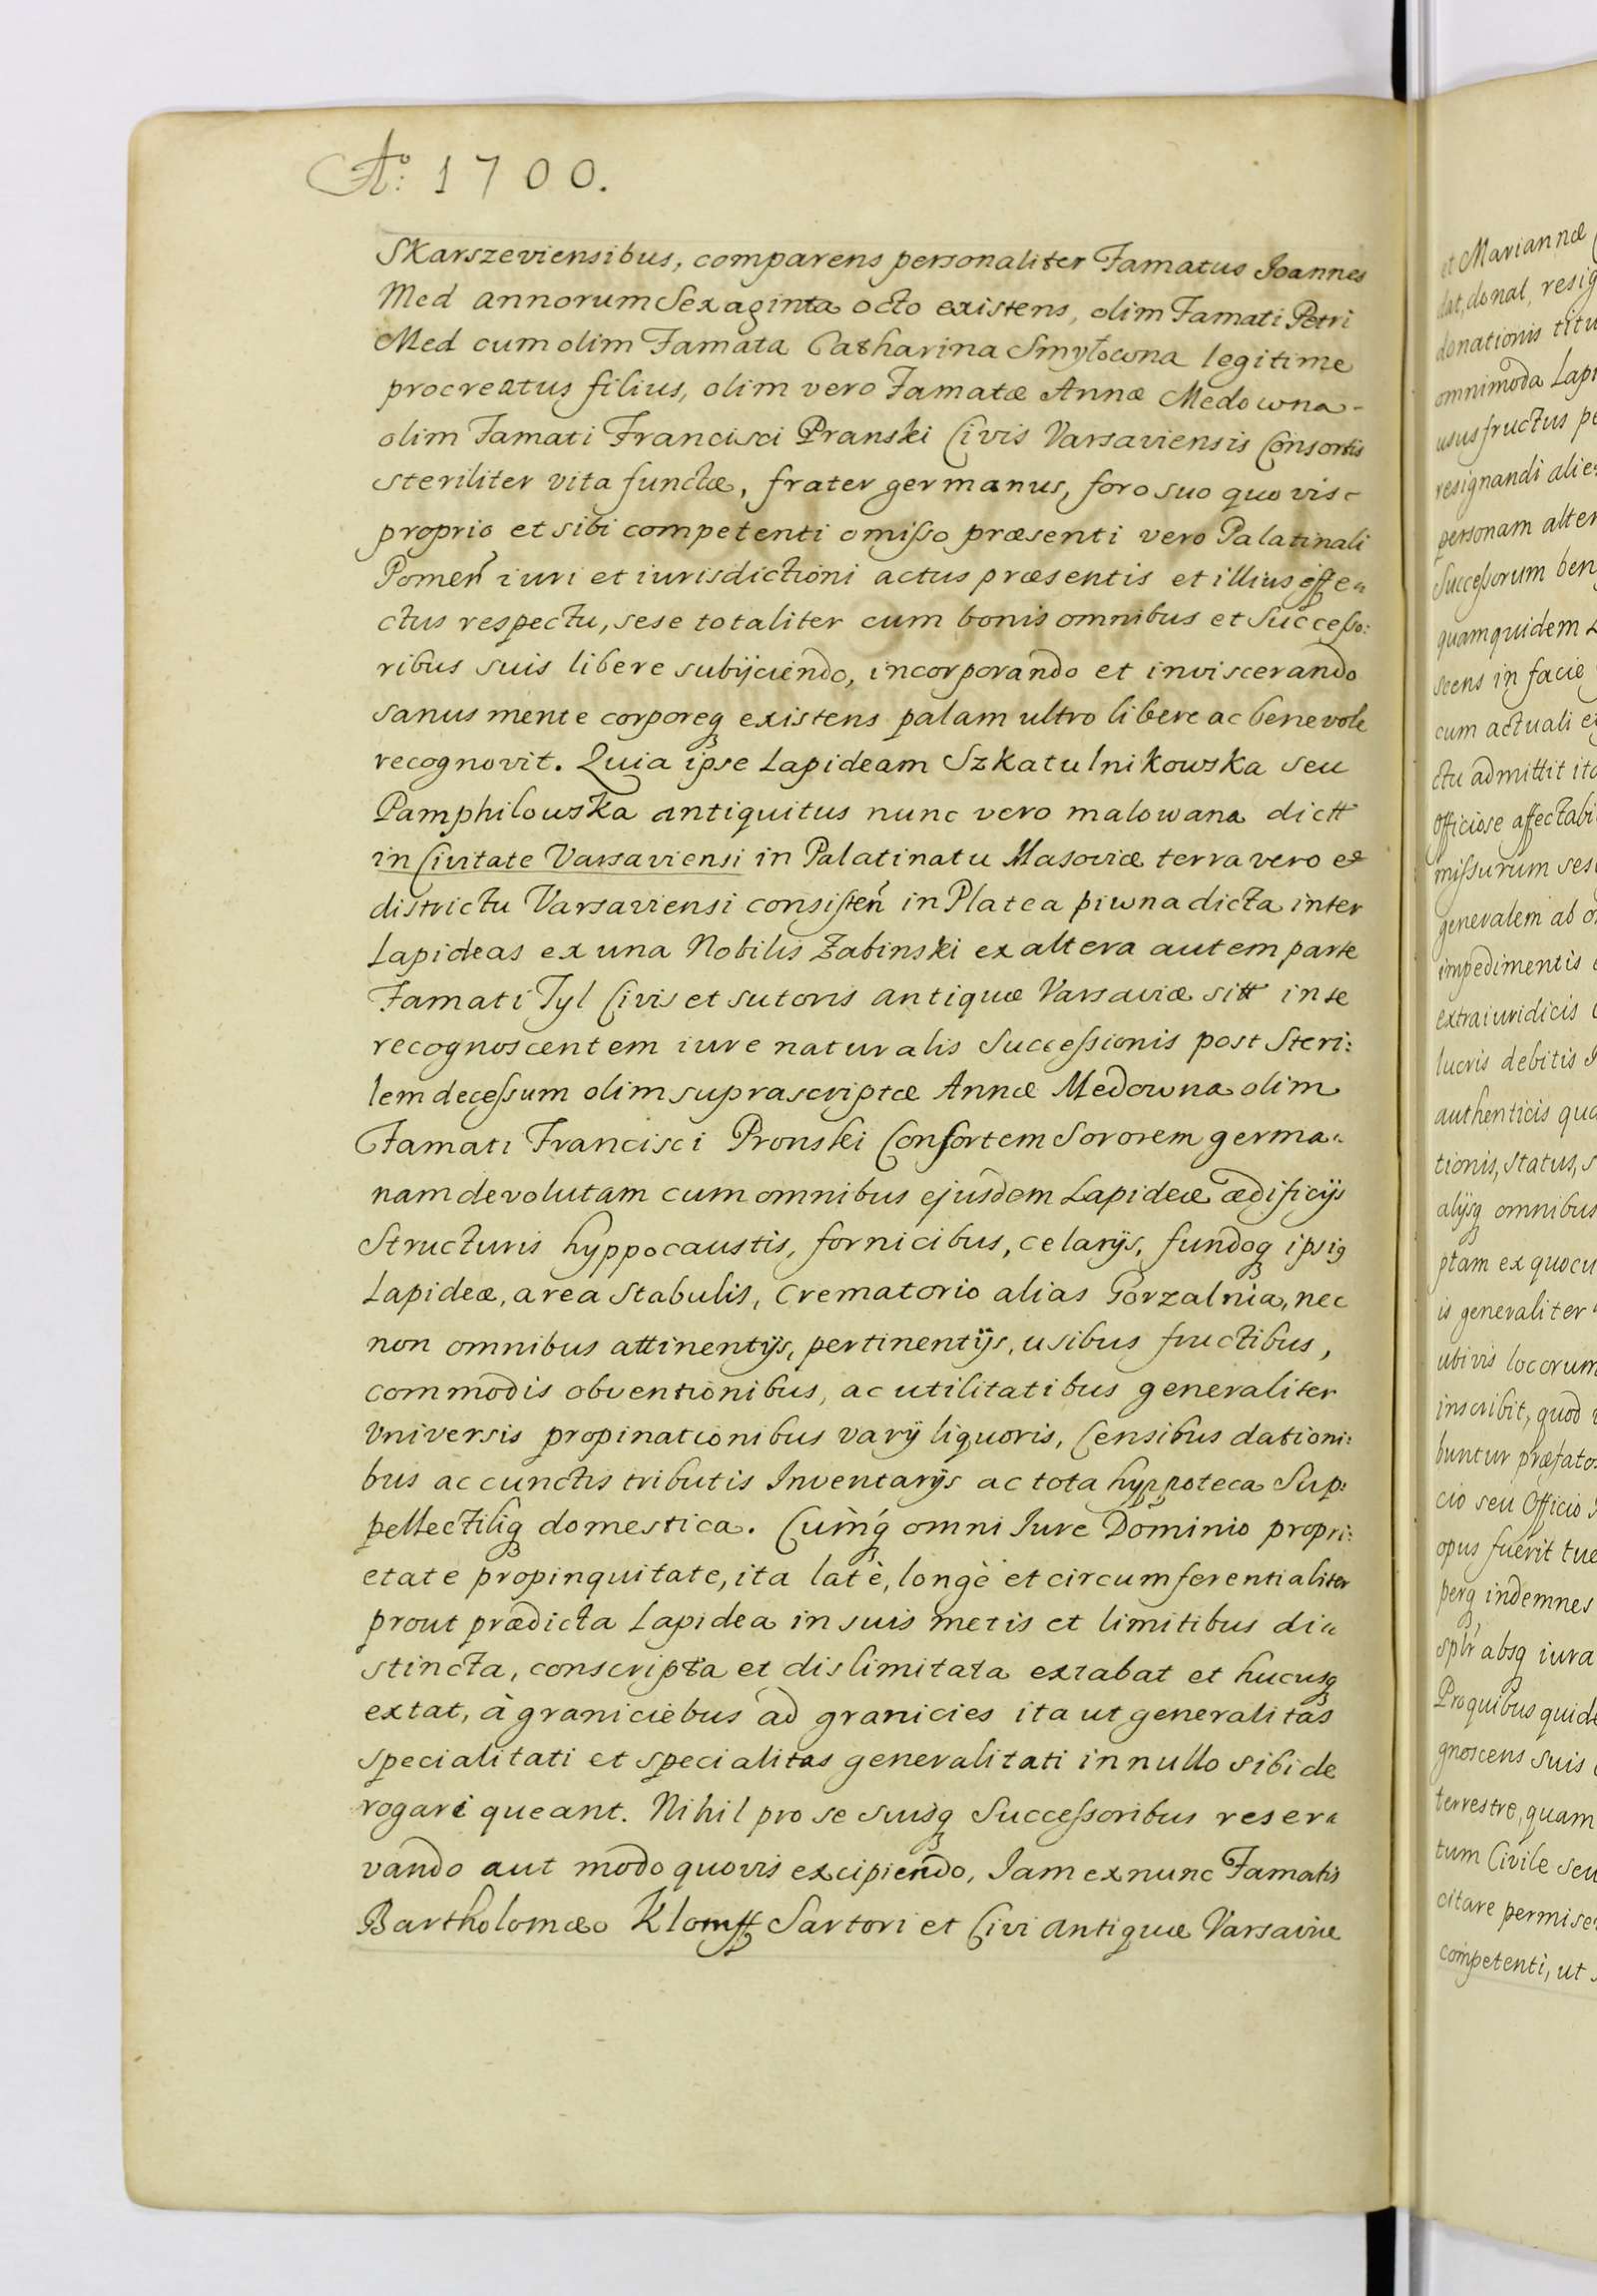 Aº: 1700.
Skarszeviensibus, comparens personaliter Famatus Joannes
Med annorum Sexaginta octo existens, olim Famati Petri
Med cum olim Famata Catharina Smyłowna legitime
procreatus filius, olim vero Famatæ Annæ Medowna-
olim Famati Francisci Pranski Civis Varsaviensis Consortis
steriliter vita functæ, frater germanus, foro suo quo vis-
proprio et sibi competenti omisso præsenti vero Palatinali
Pomeñ iuri et iurisdictioni actus præsentis et illius effe„
ctus respectu, sese totaliter cum bonis omnibus et Successo:
ribus suis libere subijciendo, incorporando et inviscerando
sanus mente corporeq existens palam ultro libere ac benevole
recognovit. Quia ipse Lapideam Szkatulnikowska seu
Pamphilowska antiquitus nunc vero malowana dictt
in Civitate Varsaviensi in Palatinatu Masoviæ terra vero et
districtu Varsaviensi consisteñ in Platea piwna dicta inter
Lapideas ex una Nobilis Zabinski ex altera autem parte
Famati Tyl Civis et sutoris antiquæ Varsaviæ sitt in se
recognoscentem iure naturalis Successionis post Steri:
lem decessum olim suprascriptæ Annæ Medowna olim
Famati Francisci Pronski Consortem Sororem germa„
nam devolutam cum omnibus ejusdem Lapideæ ædificijs
Structuris hyppocaustis, fornicibus, celarijs, fundoq ipsig
Lapideæ, area Stabulis, Crematorio alias Gorzalnia, nec
non omnibus attinentijs, pertinentijs, usibus fructibus,
commodis obventionibus, ac utilitatibus generaliter
Vniversis propinationibus varij liquoris, Censibus dationi:
bus ac cunctis tributis Inventarijs ac tota hyppoteca Sup:
pellectiliq domestica. Cumq́ omni Iure Dominio propri:
etate propinquitate, ita latè, longè et circumferentialiter
prout prædicta Lapidea in suis metis et limitibus di„
stincta, conscripta et dislimitata extabat et hucusq
extat, à graniciebus ad granicies ita ut generalitas
specialitati et specialitas generalitati in nullo sibi de
rogari queant. Nihil pro se suisq Successoribus reser„
vando aut modo quovis excipiendo, Iam ex nunc Famatis
Bartholomæo Sartori et Civi antiquæ Varsaviæ
et Mariannæ
dat, donat, resig
donationis titu
omnimoda Lapi
usus fructus pe
resignandi alie
personam alter
Successorum ben
quam quidem
scens in facie
cum actuali ex
ctu admittit ita
Officiose affectabi
missurum sese
generalem ab o
impedimentis
extraiuridicis
lucris debitis
authenticis qua
tionis, status, s
alijsq omnibus
ptam ex quocu
is generaliter
ubivis locorum
inscribit, quod
buntur præfatos
cio seu Officio
opus fuerit tue
perq indemnes
absq iura
Pro quibus quide
gnoscens suis
terrestre, quam
tum Civile seu
citare permise
competenti, ut